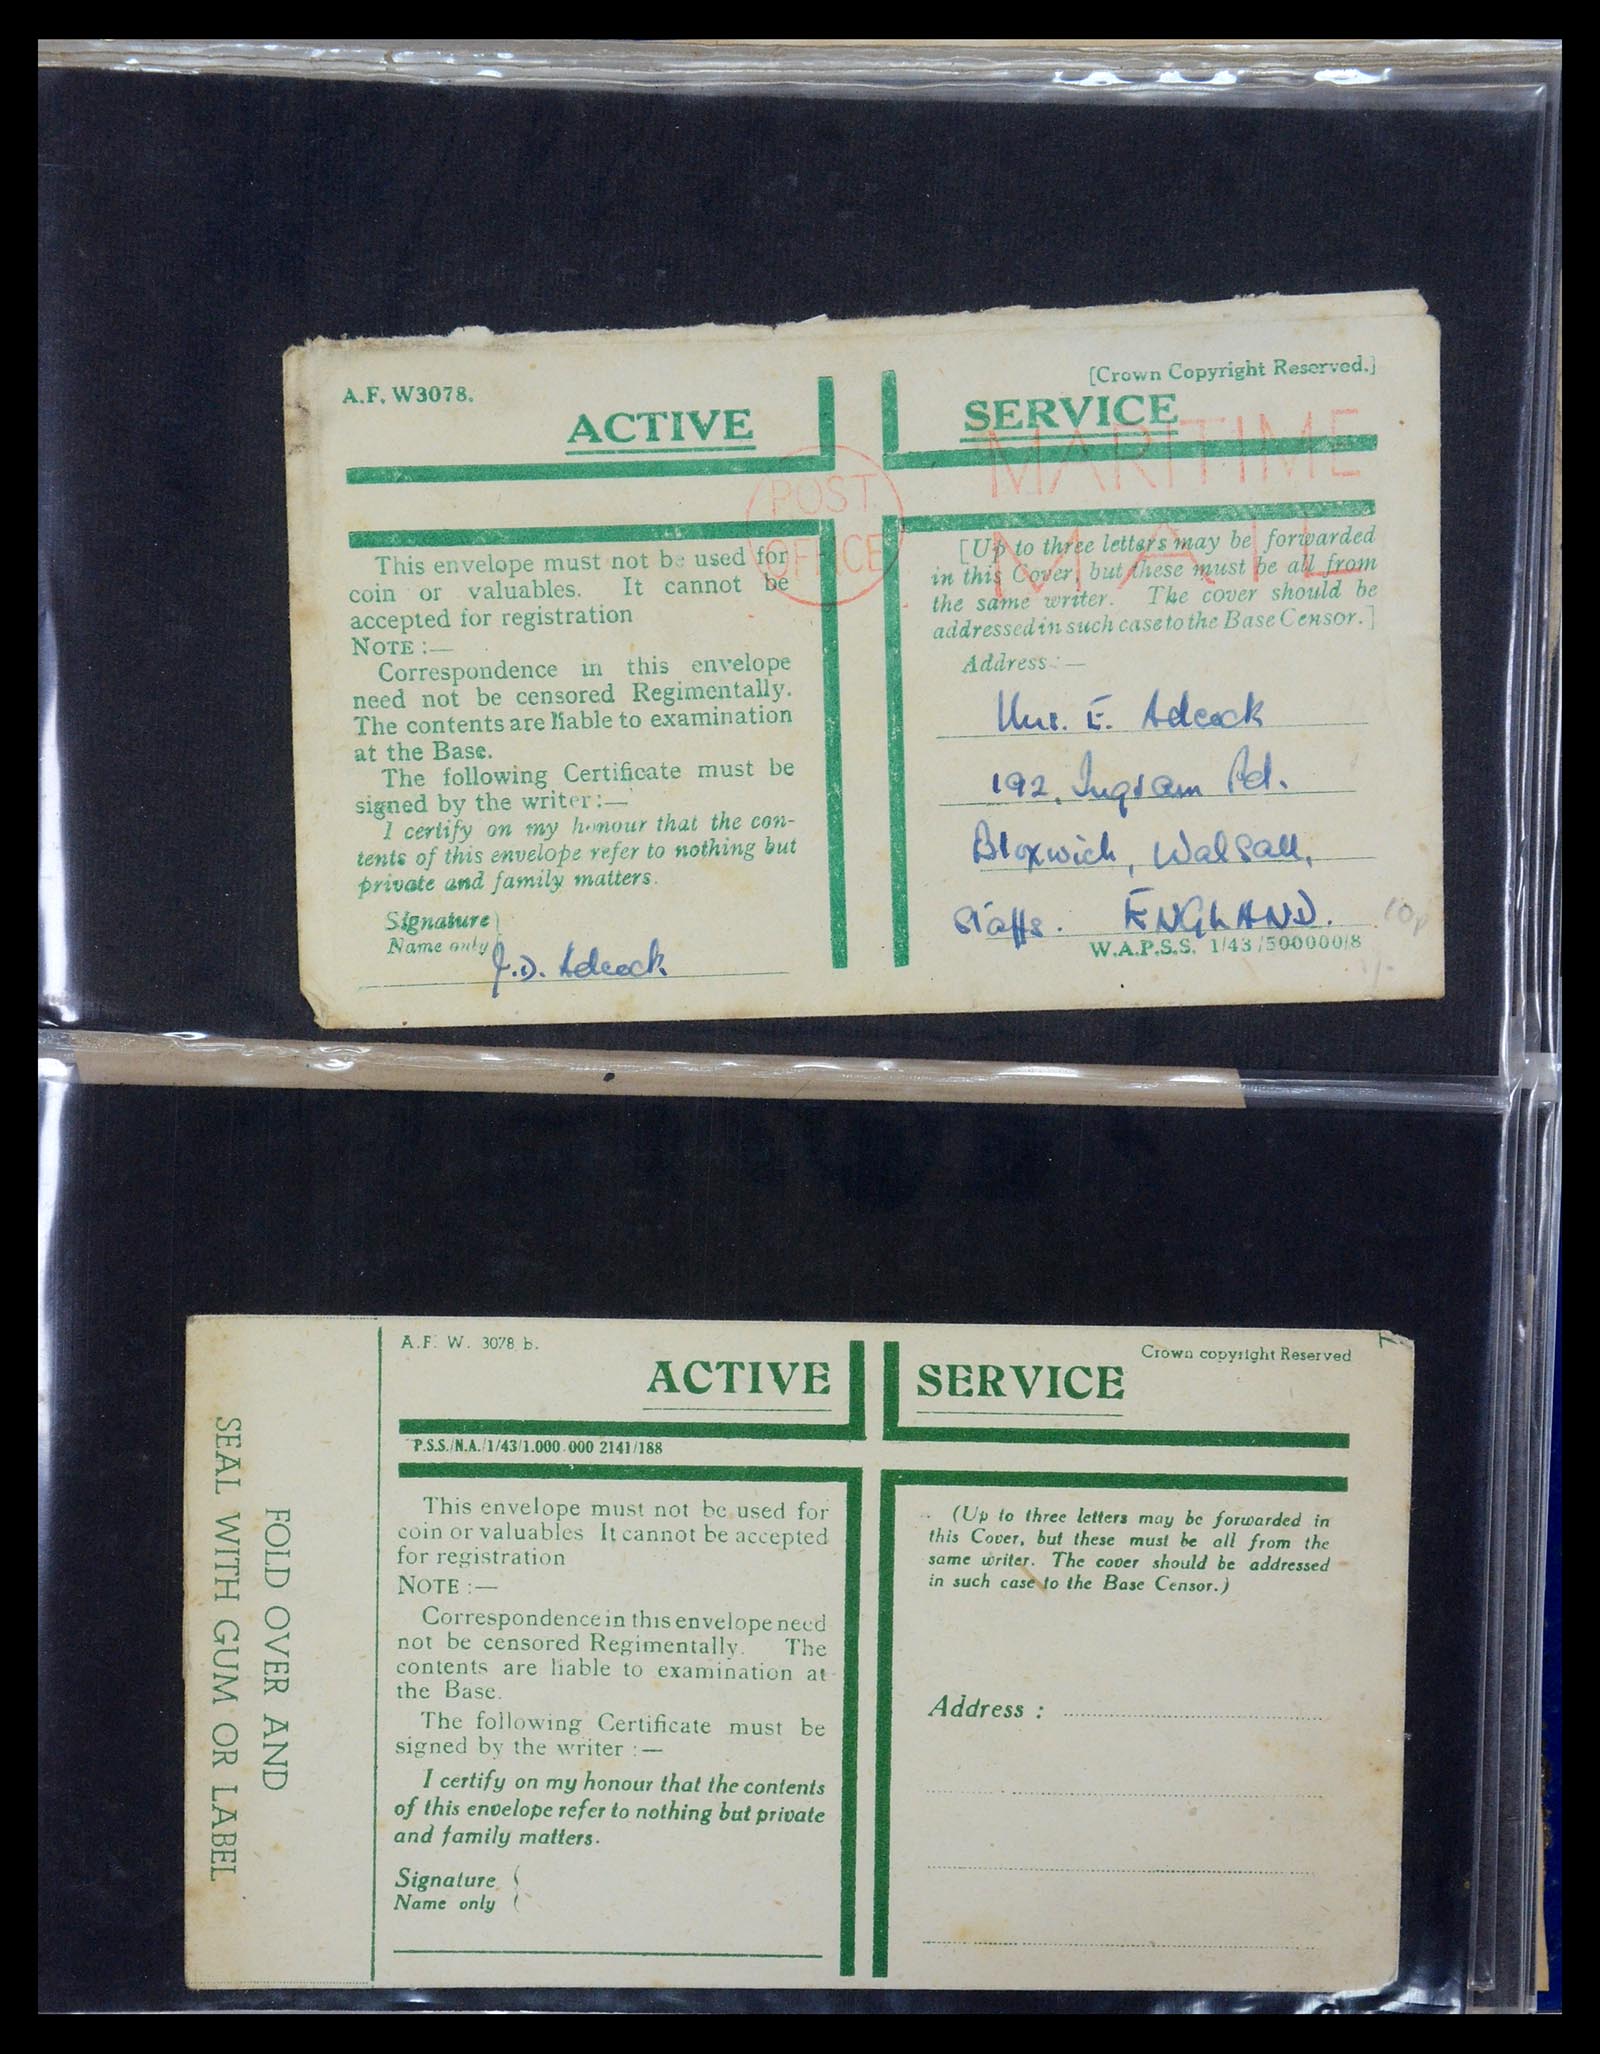 A.F. W3078.
[Crown Copyright Reserved.]
ACTIVE SERVICE
POST OFFICE
MARITIME
MAIL
This envelope must not be used for
coin or valuables. It cannot be
accepted for registration
NOTE :—
Correspondence in this envelope
need not be censored Regimentally.
The contents are liable to examination
at the Base.
The following Certificate must be
signed by the writer :—
I certify on my honour that the con-
tents of this envelope refer to nothing but
private and family matters.
Signature
Name only
J.D. Adcock
[Up to three letters may be forwarded
in this Cover, but these must be all from
the same writer. The cover should be
addressed in such case to the Base Censor.]
Address :—
Mrs. E. Adcock
192, Ingram Rd.
Bloxwich, Walsall,
Staffs. ENGLAND.
10p
W.A.P.S.S. 1/43/500000/8
FOLD OVER AND
SEAL WITH GUM OR LABEL
A.F. W. 3078 b.
Crown copyright Reserved
ACTIVE SERVICE
P.S.S./N.A./1/43/1.000.000 2141/188
This envelope must not be used for
coin or valuables It cannot be accepted
for registration
NOTE :—
Correspondence in this envelope need
not be censored Regimentally. The
contents are liable to examination at
the Base.
The following Certificate must be
signed by the writer :—
I certify on my honour that the contents
of this envelope refer to nothing but private
and family matters.
Signature
Name only
(Up to three letters may be forwarded in
this Cover, but these must be all from the
same writer. The cover should be addressed
in such case to the Base Censor.)
Address :